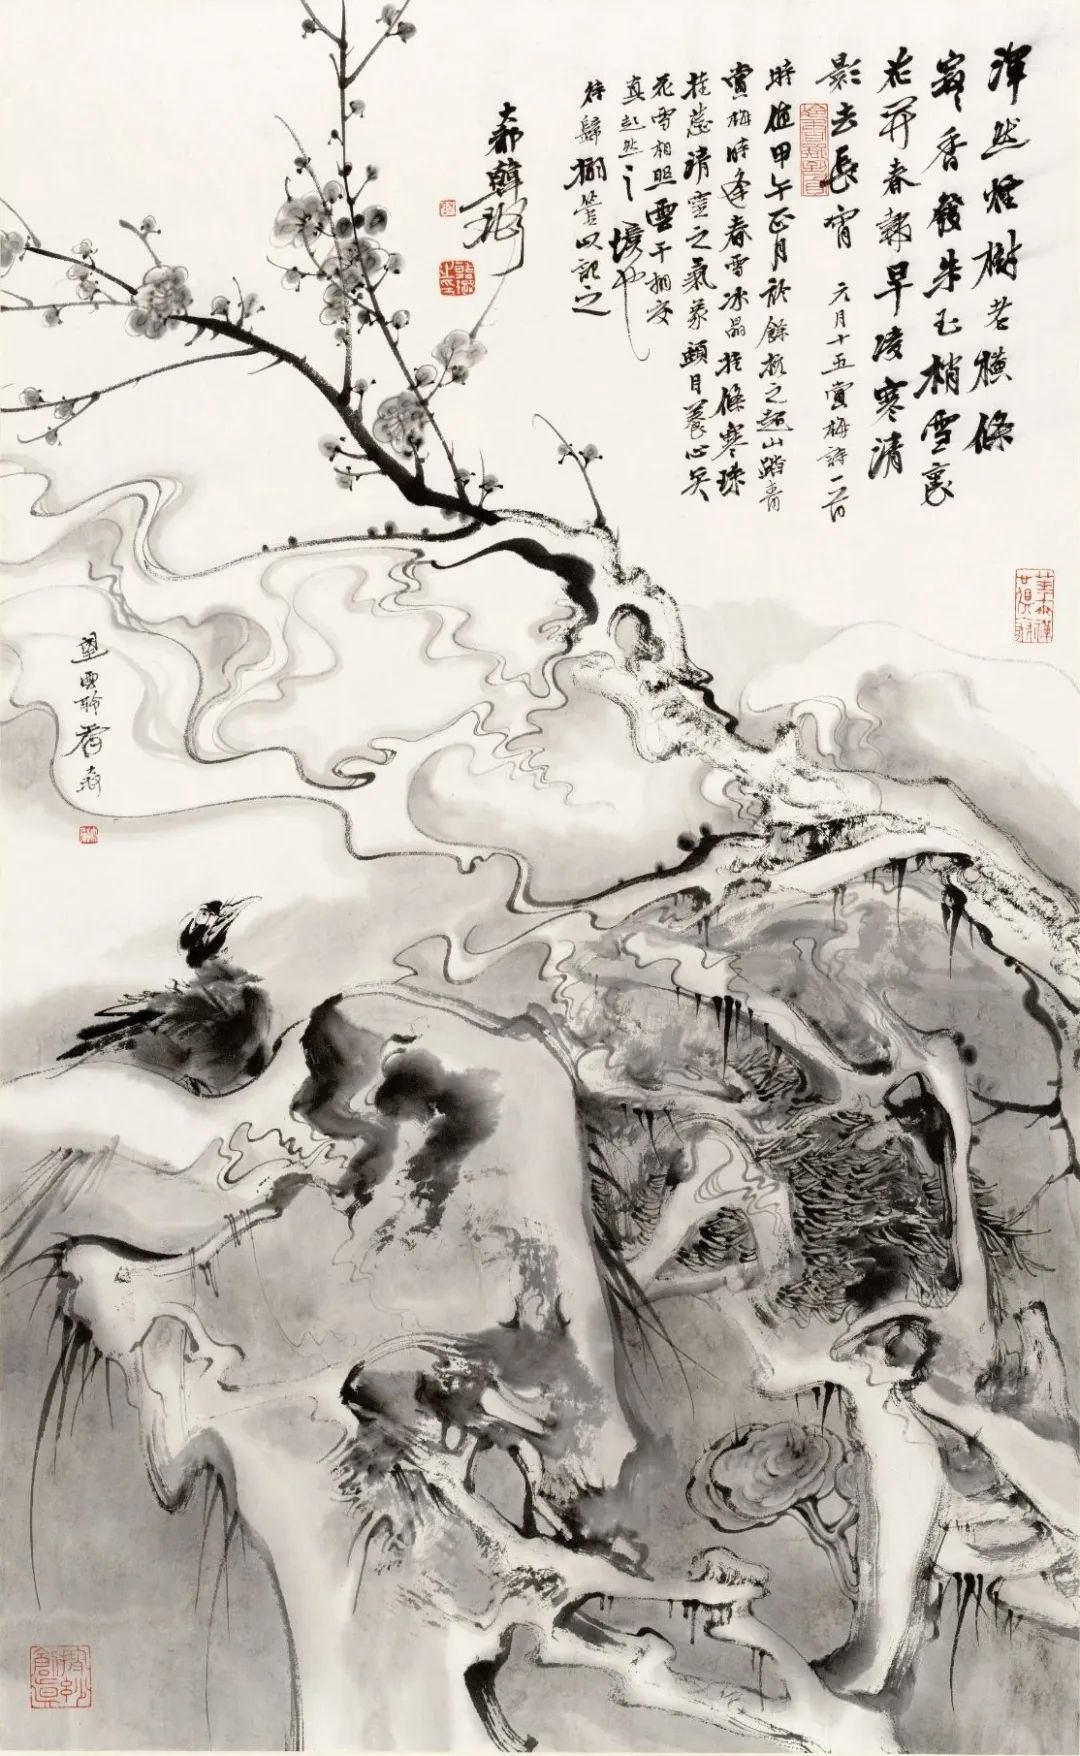 渾然怪樹若橫條
寂〻香發朱玉梢雪裏
花開春報早凌寒清
影去長宵 元月十五賞梅詩一首
時值甲午正月於餘杭之超山踏青
賞梅時逢春雪冰晶挂條寒珠
挂蕊清靈之氣象頤目養心矣
花雪相照雲干相交
真超然之境也
待歸擱筆以記之
大都韓
望雲聆香